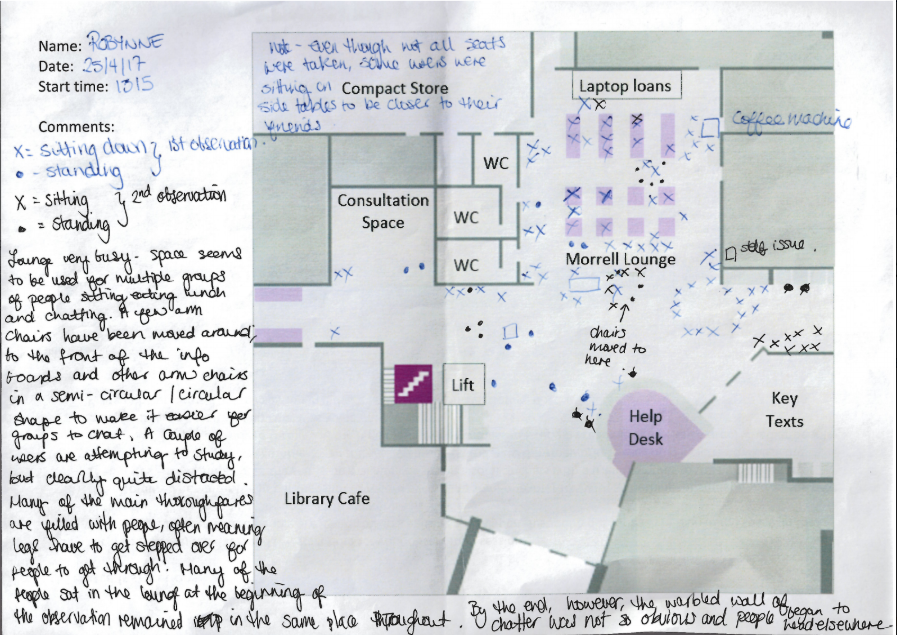 Name: ROBYNNE
Date: 25/4/17
Start time: 1315
Comments:
X = sitting down } 1st observation.
• - standing
X = sitting } 2nd observation
• = standing
Lounge very busy - space seems
to be used for multiple groups
of people sitting eating lunch
and chatting. A few arm
chairs have been moved around
to the front of the info
boards and other arm chairs
in a semi-circular / circular
shape to make it easier for
groups to chat. A couple of
users are attempting to study,
but clearly quite distracted.
Many of the main thoroughfares
are filled with people, often meaning
legs have to get stepped over for
people to get through. Many of the
people sat in the lounge at the beginning of
the observation remained in the same place throughout. By the end, however, the warbled wall of
chatter was not so obvious and people began to
head elsewhere
note - even though not all seats
were taken, some users were
sitting on
side tables to be closer to their
friends
Compact Store
Laptop loans
Coffee machine
WC
Consultation
Space
WC
WC
Morrell Lounge
self issue.
chairs
moved to
here
Lift
Help
Desk
Key
Texts
Library Cafe